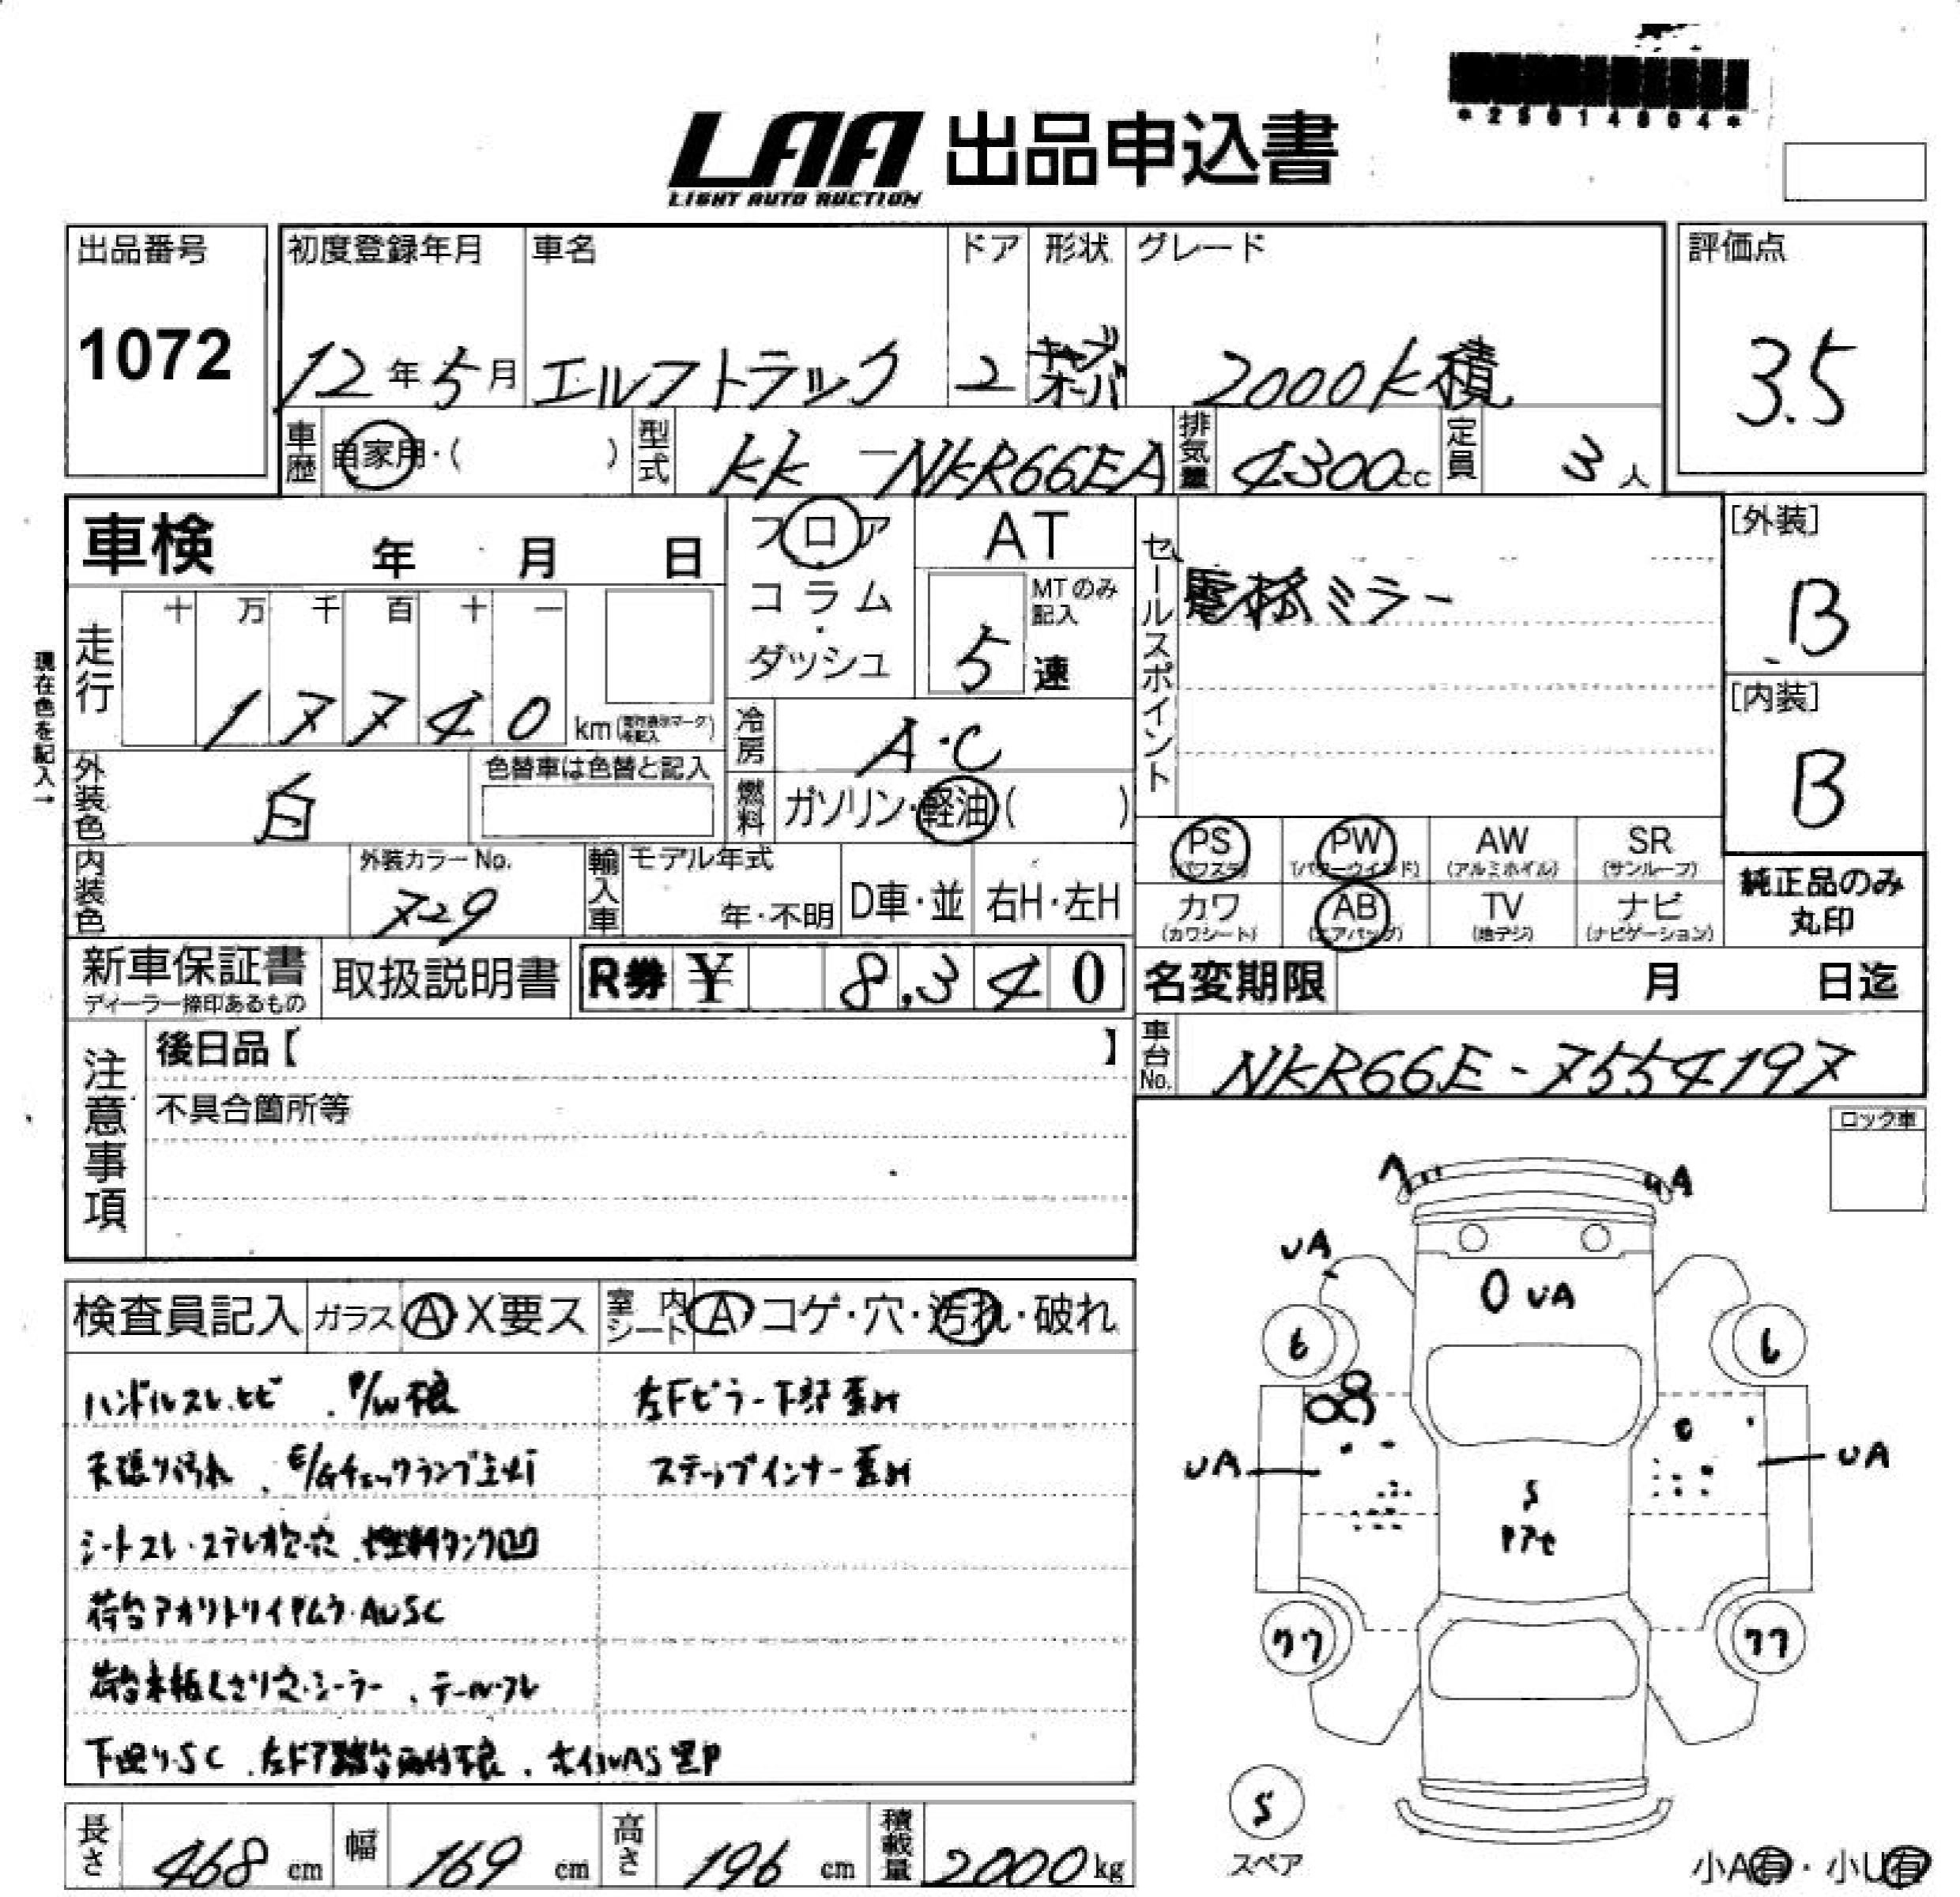 *25014804*
LAA 出品申込書
LIGHT AUTO AUCTION
出品番号
1072
初度登録年月
12年5月
車名
エルフトラック
ドア
2
形状
キャブオーバ
グレード
2000k積
評価点
3.5
車歴 自家用・( )
型式 KK-NKR66EA
排気量 4300cc
定員 3人
車検 年 月 日
フロア・コラム・ダッシュ
AT
MTのみ記入
5速
セールスポイント
電格ミラー
[外装]
B
[内装]
B
現在色を記入→
走行 十 万 千 百 十 一
17740 km
冷房 A・C
外装色 白
色替車は色替と記入
燃料 ガソリン・軽油( )
内装色
外装カラーNo.
729
輸入車 モデル年式
年・不明
D車・並
右H・左H
PS (パワステ)
PW (パワーウインド)
AW (アルミホイル)
SR (サンルーフ)
カワ (カワシート)
AB (エアバッグ)
TV (地デジ)
ナビ (ナビゲーション)
純正品のみ丸印
新車保証書
ディーラー捺印あるもの
取扱説明書
R券 ¥ 8,340
名変期限 月 日迄
車台No. NKR66E-7554197
注意事項
後日品【 】
不具合箇所等
ロック車
検査員記入
ガラス A・X要ス
室内シート A・コゲ・穴・汚れ・破れ
ハンドルスレ・ヒビ . P/W不良
天張り汚れ . E/Gチェックランプ点灯
シートスレ・ステレオ欠・穴 . 燃料タンク凹
荷台アオリトリイPムラ・AUSC
荷台木板くさり穴・シーラー . テールワレ
下回り・SC . 左ドア 不良 . ホイルAS黒P
左Fピラー下部歪み
ステップインナー歪み
A
UA
UA
6
6
UA
UA
S
Pアセ
77
77
S
スペア
小A有・小U有
長さ 468 cm
幅 169 cm
高さ 196 cm
積載量 2000kg